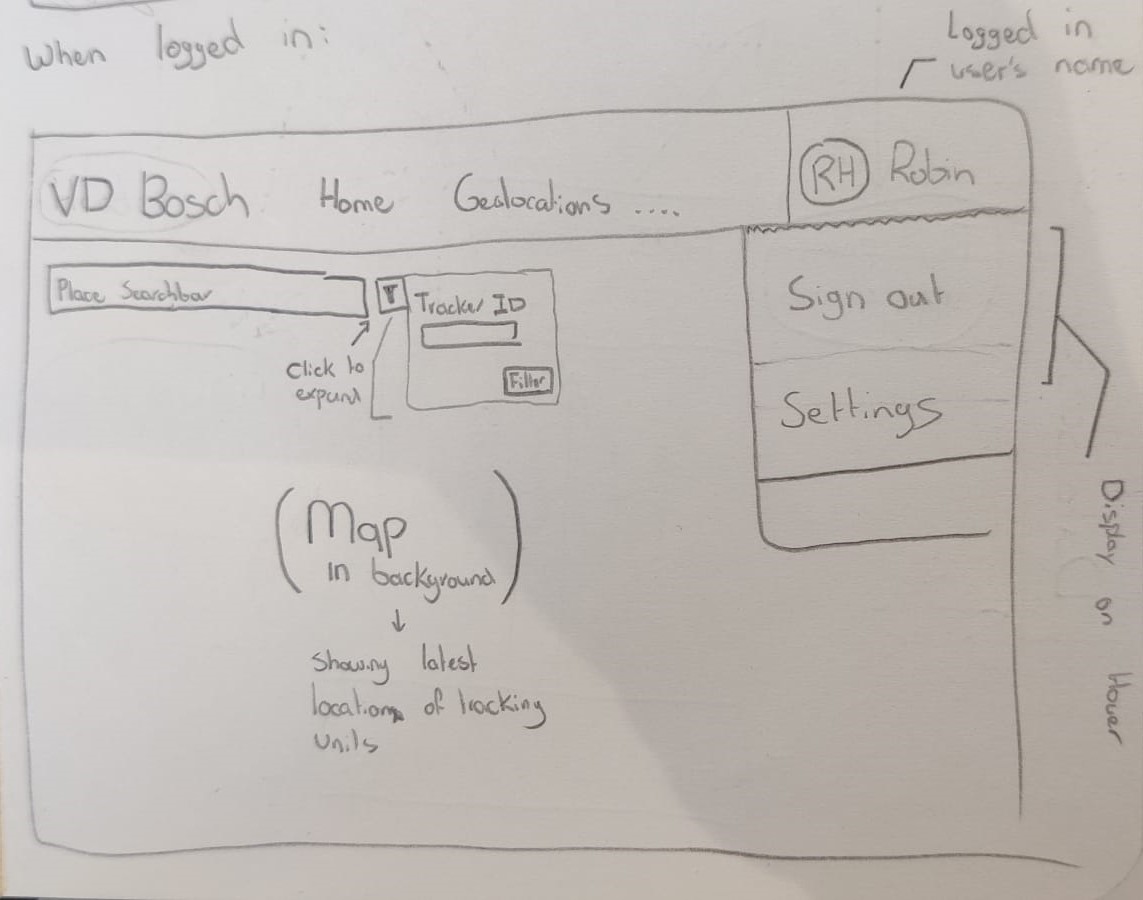 When logged in:
Logged in
user's name
VD Bosch Home Geolocations ....
RH Robin
Place Searchbar
Tracker ID
Filter
Click to
expand
Sign out
Settings
Display on Hover
(Map
in background)
↓
Showing latest
locations of tracking
units